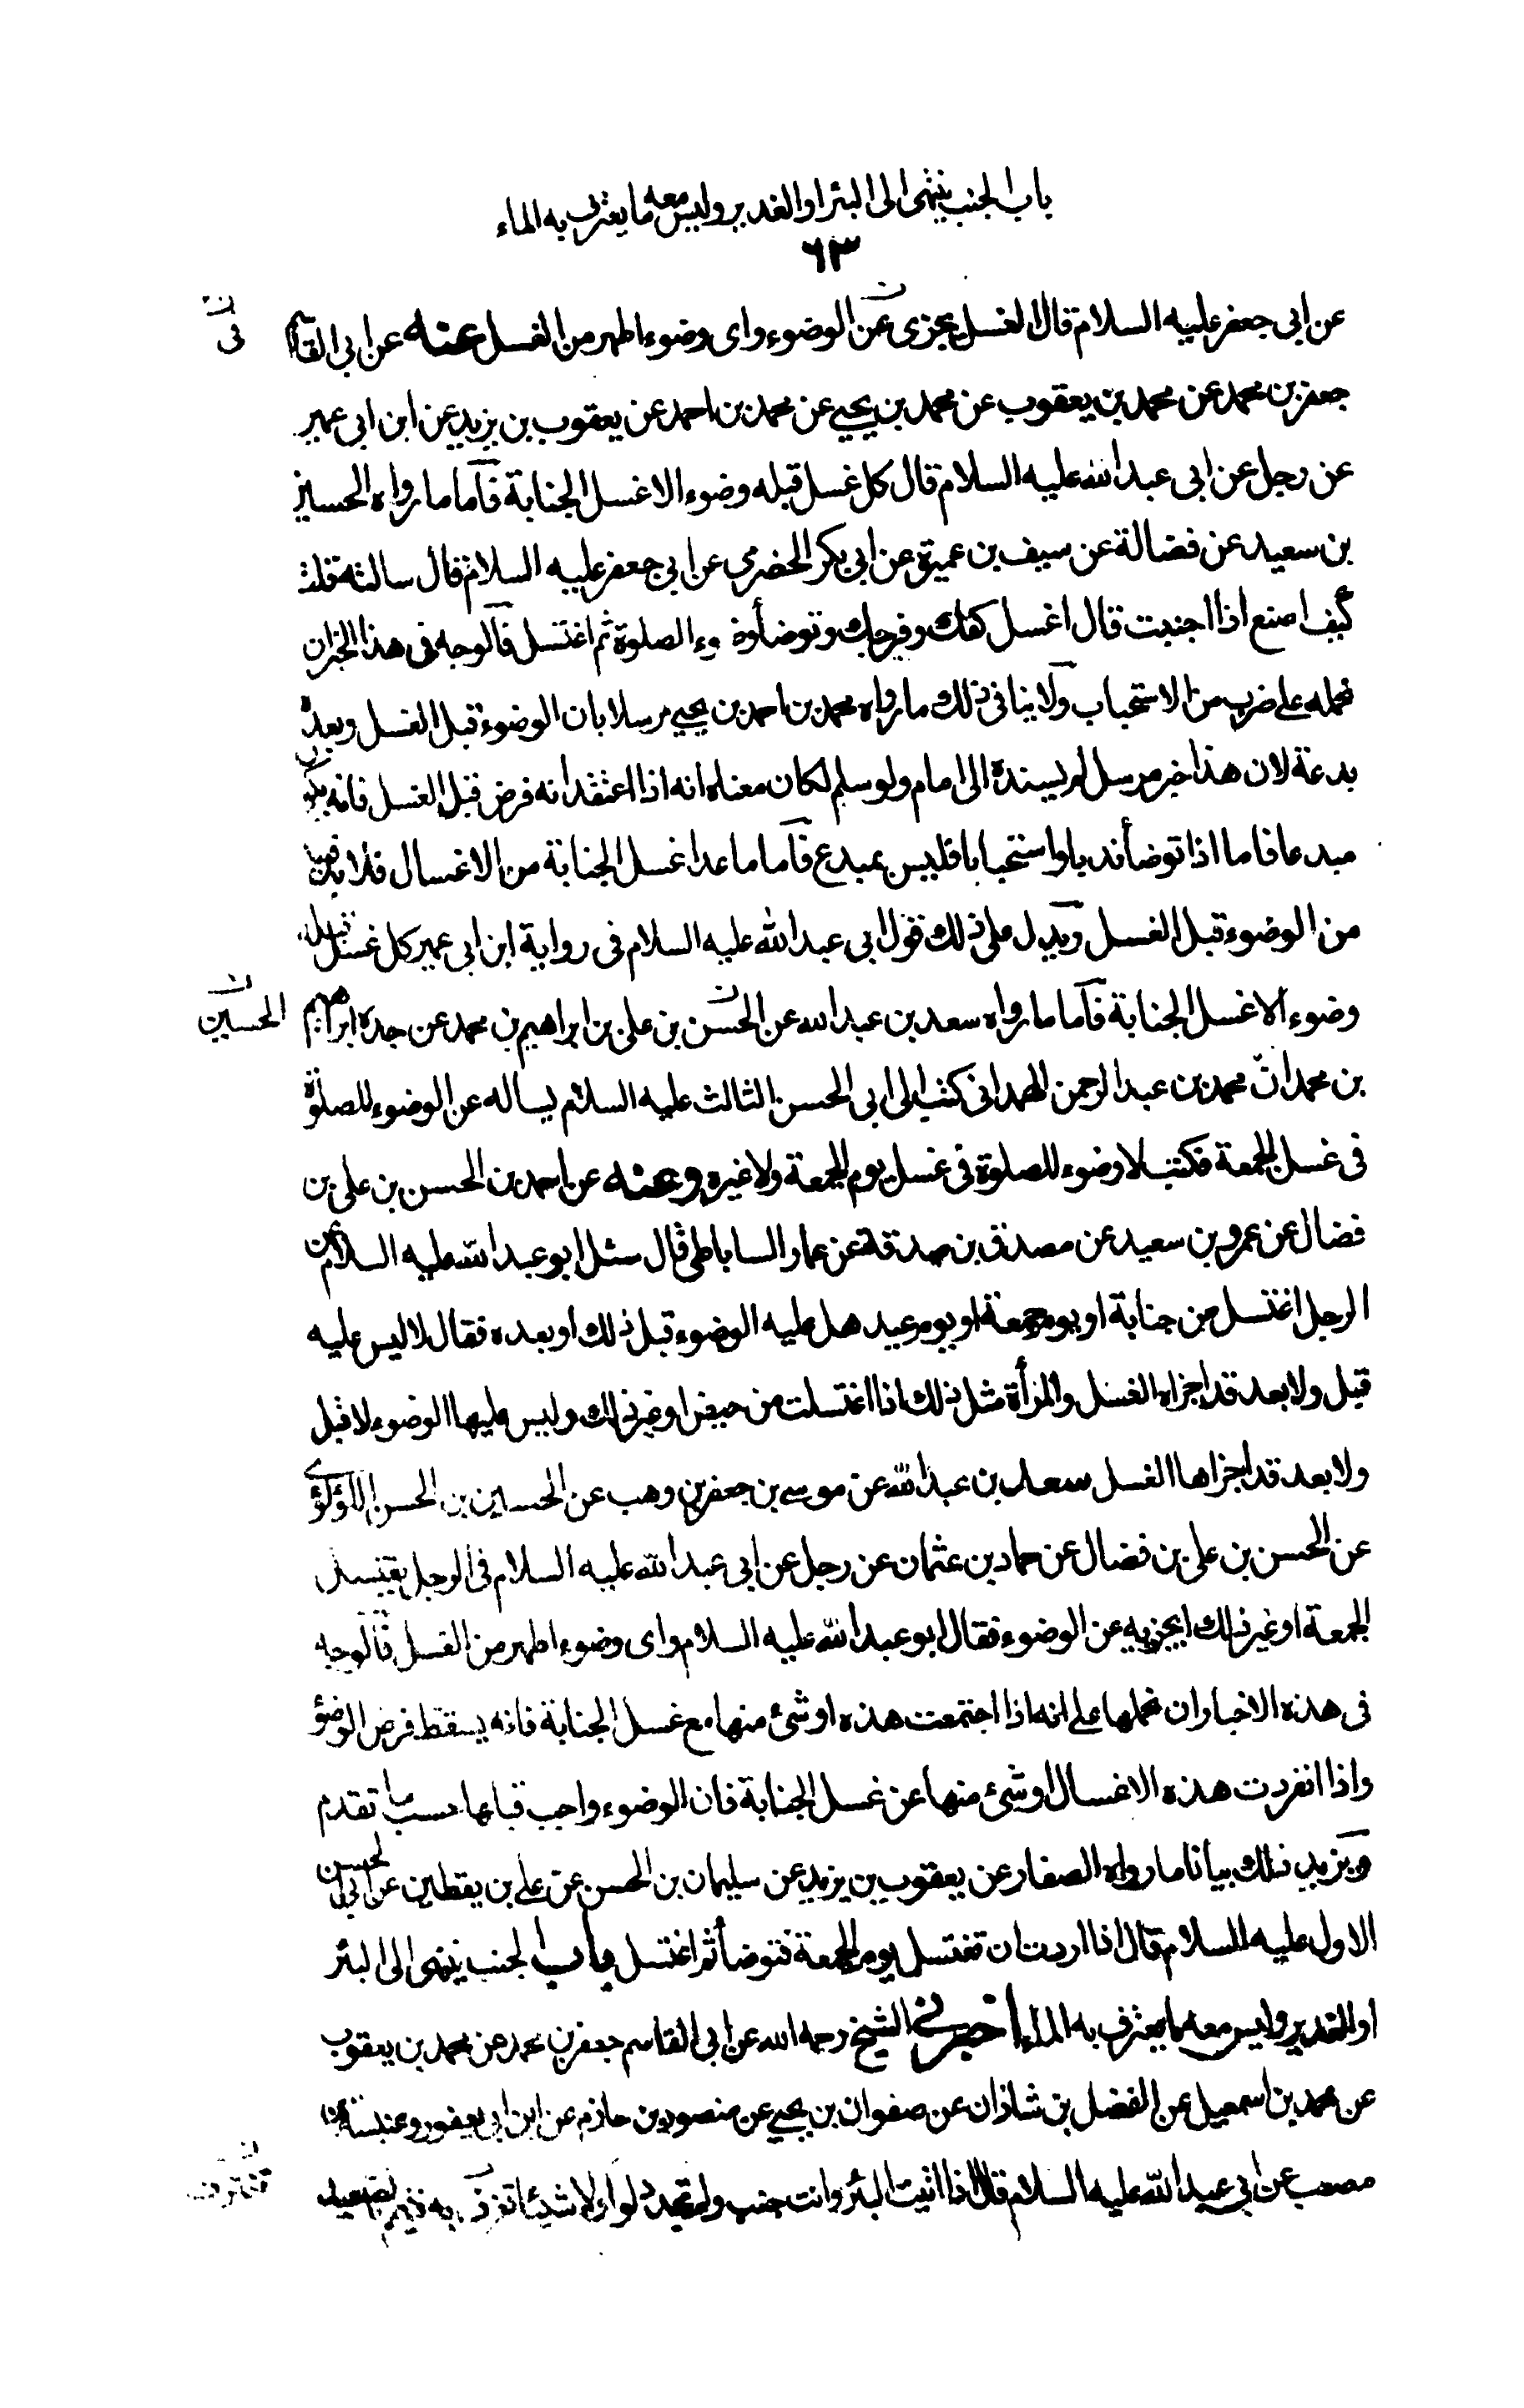 باب الجنب ينتهى الى البئر او الغدير وليس معه ما يغترف به الماء
٦٣
عن ابى جعفر عليه السلام قال الغسل يجزى عن الوضوء واى وضوء اطهر من الغسل عنه عن ابى القاسم
جعفر بن محمد عن محمد بن يعقوب عن محمد بن يحيى عن محمد بن احمد عن يعقوب بن يزيد عن ابن ابى عمير
عن رجل عن ابى عبد الله عليه السلام قال كل غسل قبله وضوء الا غسل الجنابة فاما ما رواه الحسين
بن سعيد عن فضالة عن سيف بن عميرة عن ابى بكر الحضرمى عن ابى جعفر عليه السلام قال سالته قلت
كيف اصنع اذا اجنبت قال اغسل كفك وفرجك وتوضأ وضوء الصلوة ثم اغتسل فالوجه فى هذا الخبر ان
نحمله على ضرب من الاستحباب ولا ينافى ذلك ما رواه محمد بن احمد بن يحيى مرسلا بان الوضوء قبل الغسل وبعده
بدعة لان هذا خبر مرسل لم يسنده الى امام ولو سلم لكان معناه انه اذا اعتقد انه فرض قبل الغسل فانه يكون
مبدعا فاما اذا توضأ ندبا واستحبابا فليس بمبدع فاما ما عدا غسل الجنابة من الاغسال فلا بد فيها
من الوضوء قبل الغسل ويدل على ذلك قول ابى عبد الله عليه السلام فى رواية ابن ابى عمير كل غسل قبله
وضوء الا غسل الجنابة فاما ما رواه سعد بن عبد الله عن الحسن بن على بن ابراهيم بن محمد عن جده ابراهيم
الحسين
بن محمد ان محمد بن عبد الرحمن الهمدانى كتب الى ابى الحسن الثالث عليه السلام يساله عن الوضوء للصلوة
فى غسل الجمعة فكتب لا وضوء للصلوة فى غسل يوم الجمعة ولا غيره وعنه عن احمد بن الحسن بن على بن
فضال عن عمرو بن سعيد عن مصدق بن صدقة عن عمار الساباطى قال سئل ابو عبد الله عليه السلام عن
الرجل اغتسل من جنابة او يوم جمعة او يوم عيد هل عليه الوضوء قبل ذلك او بعده فقال لا ليس عليه
قبل ولا بعد قد اجزاه الغسل والمرأة مثل ذلك اذا اغتسلت من حيض او غير ذلك وليس عليها الوضوء لا قبل
ولا بعد قد اجزاها الغسل سعد بن عبد الله عن موسى بن جعفر بن وهب عن الحسين بن الحسن اللؤلؤى
عن الحسن بن على بن فضال عن حماد بن عثمان عن رجل عن ابى عبد الله عليه السلام فى الرجل يغتسل
الجمعة او غير ذلك ايجزيه عن الوضوء فقال ابو عبد الله عليه السلام واى وضوء اطهر من الغسل فالوجه
فى هذه الاخبار ان نحملها على انه اذا اجتمعت هذه او شئ منها مع غسل الجنابة فانه يسقط فرض الوضوء
واذا انفردت هذه الاغسال او شئ منها عن غسل الجنابة فان الوضوء واجب قبلها حسب ما تقدم
ويزيد ذلك بيانا ما رواه الصفار عن يعقوب بن يزيد عن سليمان بن الحسن عن على بن يقطين عن ابى الحسن
الاول عليه السلام قال اذا اردت ان تغتسل يوم الجمعة فتوضأ ثم اغتسل باب الجنب ينتهى الى البئر
او الغدير وليس معه ما يغترف به الماء اخبرنى الشيخ رحمه الله عن ابى القاسم جعفر بن محمد عن محمد بن يعقوب
عن محمد بن اسمعيل عن الفضل بن شاذان عن صفوان بن يحيى عن منصور بن حازم عن ابن ابى يعفور وعنبسة بن
مصعب عن ابى عبد الله عليه السلام قال اذا اتيت البئر وانت جنب ولم تجد دلوا ولا شيئا تغرف به فتيمم بالصعيد